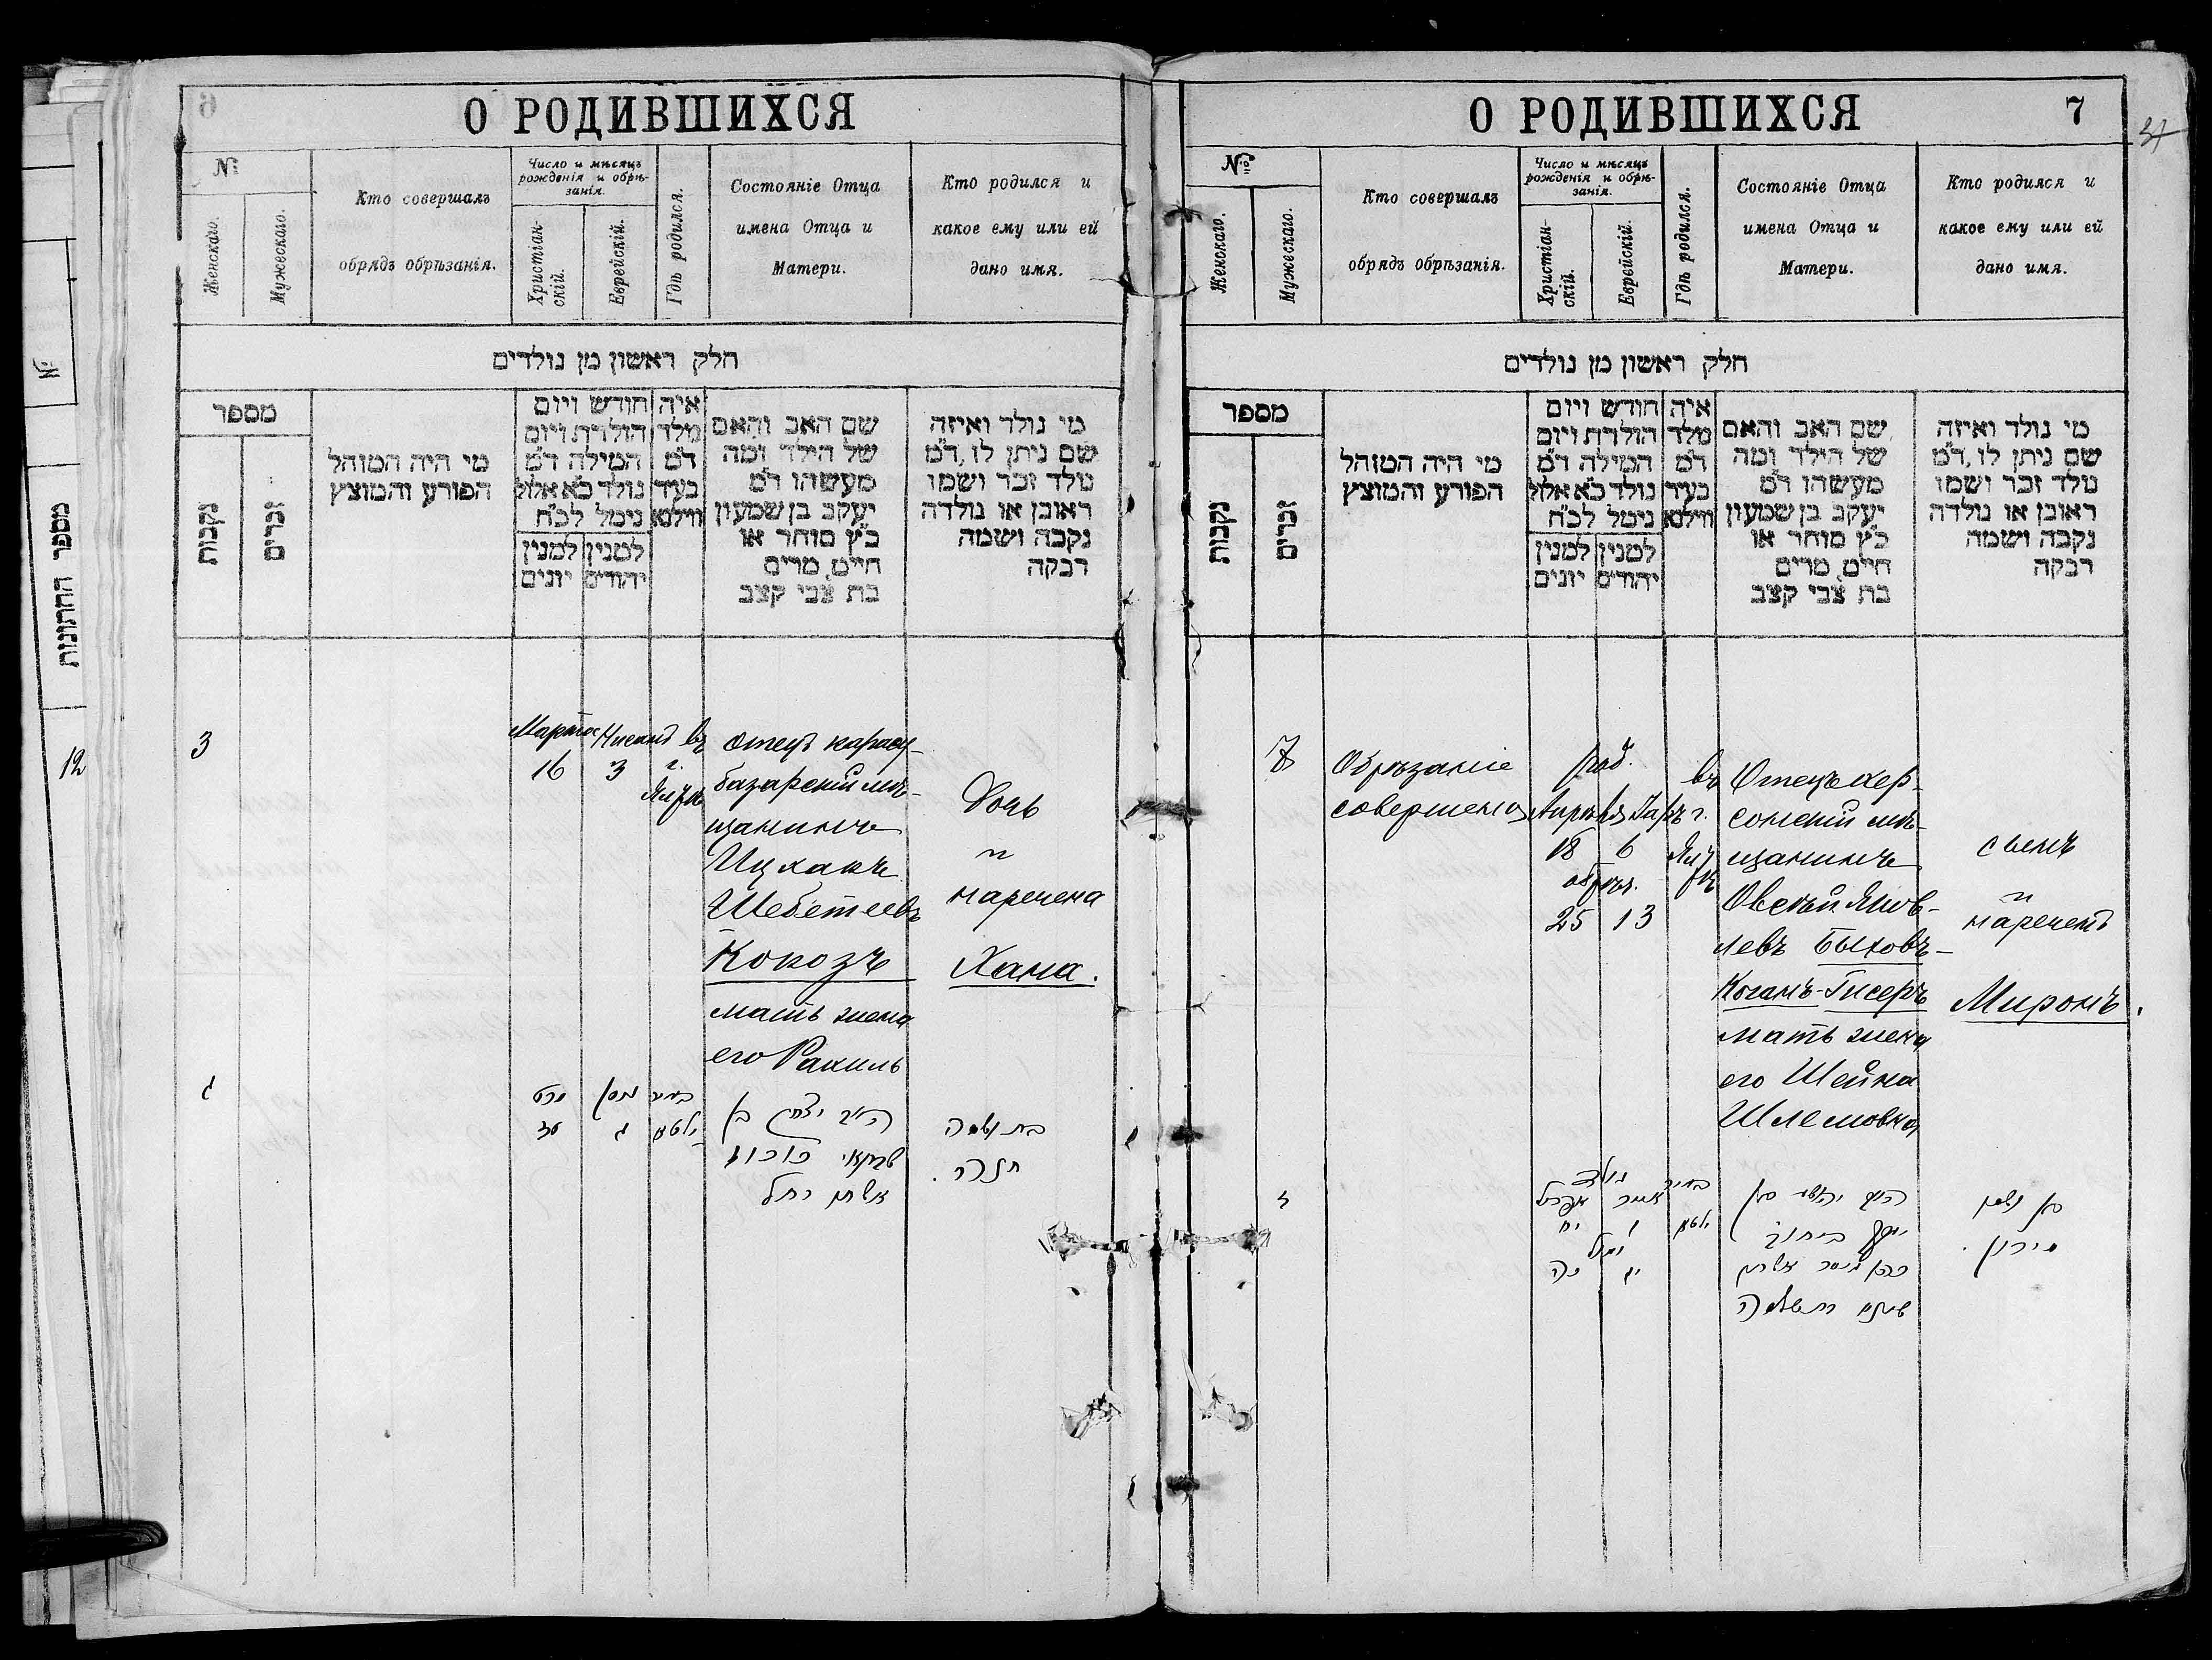 6
О РОДИВШИХСЯ
№
Женскаго.
Мужескаго.
Кто совершалъ
обрядъ обрѣзанія.
Число и мѣсяцъ
рожденія и обрѣ-
занія.
Христіан-
скій.
Еврейскій.
Гдѣ родился.
Состояніе Отца
имена Отца и
Матери.
Кто родился и
какое ему или ей
дано имя.
חלק ראשון מן נולדים
מספר
נקבות
זכרים
מי היה המוהל
הפורע והמוצץ
חודש ויום
הולדת ויום
המילה ד״מ
נולד כ״א אלול
נימל לכ״ח
למנין
יונים
למנין
יהודים
איה
מלד
ד״מ
בעיר
ווילנא
שם האב והאם
של הילד ומה
מעשהו ד״מ
יעקב בן שמעון
כ״ץ סוחר או
חייט, מרים
בת צבי קצב
מי נולד ואיזה
שם ניתן לו, ד״מ
נולד זכר ושמו
ראובן או נולדה
נקבה ושמה
רבקה
3
Марта
16
Нисанъ
3
въ
г.
Ялтѣ
Отецъ карасу-
базарскій мѣ-
щанинъ
Ицхакъ
Шебетеевъ
Кокозъ
мать жена
его Рахиль
Дочь
и
наречена
Хана.
ג
מרט
ניסן
ג
בעיר
יאלטא
יצחק בן
רחל
בת ושמה
חנה.
О РОДИВШИХСЯ
7
37
№
Женскаго.
Мужескаго.
Кто совершалъ
обрядъ обрѣзанія.
Число и мѣсяцъ
рожденія и обрѣ-
занія.
Христіан-
скій.
Еврейскій.
Гдѣ родился.
Состояніе Отца
имена Отца и
Матери.
Кто родился и
какое ему или ей
дано имя.
חלק ראשון מן נולדים
מספר
נקבות
זכרים
מי היה המוהל
הפורע והמוצץ
חודש ויום
הולדת ויום
המילה ד״מ
נולד כ״א אלול
נימל לכ״ח
למנין
יונים
למנין
יהודים
איה
מלד
ד״מ
בעיר
ווילנא
שם האב והאם
של הילד ומה
מעשהו ד״מ
יעקב בן שמעון
כ״ץ סוחר או
חייט, מרים
בת צבי קצב
מי נולד ואיזה
שם ניתן לו, ד״מ
נולד זכר ושמו
ראובן או נולדה
נקבה ושמה
רבקה
7
Обрѣзаніе
совершено
род.
Апрѣля
18 6
обрѣз.
25 13
въ
г.
Ялтѣ
Отецъ хер-
сонскій мѣ-
щанинъ
Овсѣй Яков-
левъ Быховъ-
Коганъ-Гисеръ
мать жена
его Шейна
Шлемовна
сынъ
и
нареченъ
Миронъ.
ז
נולד
אפריל
אייר
יח
ו
נימול
כה
יג
בעיר
יאלטא
בן ושמו
מירון.
מספר החתונות
№
12